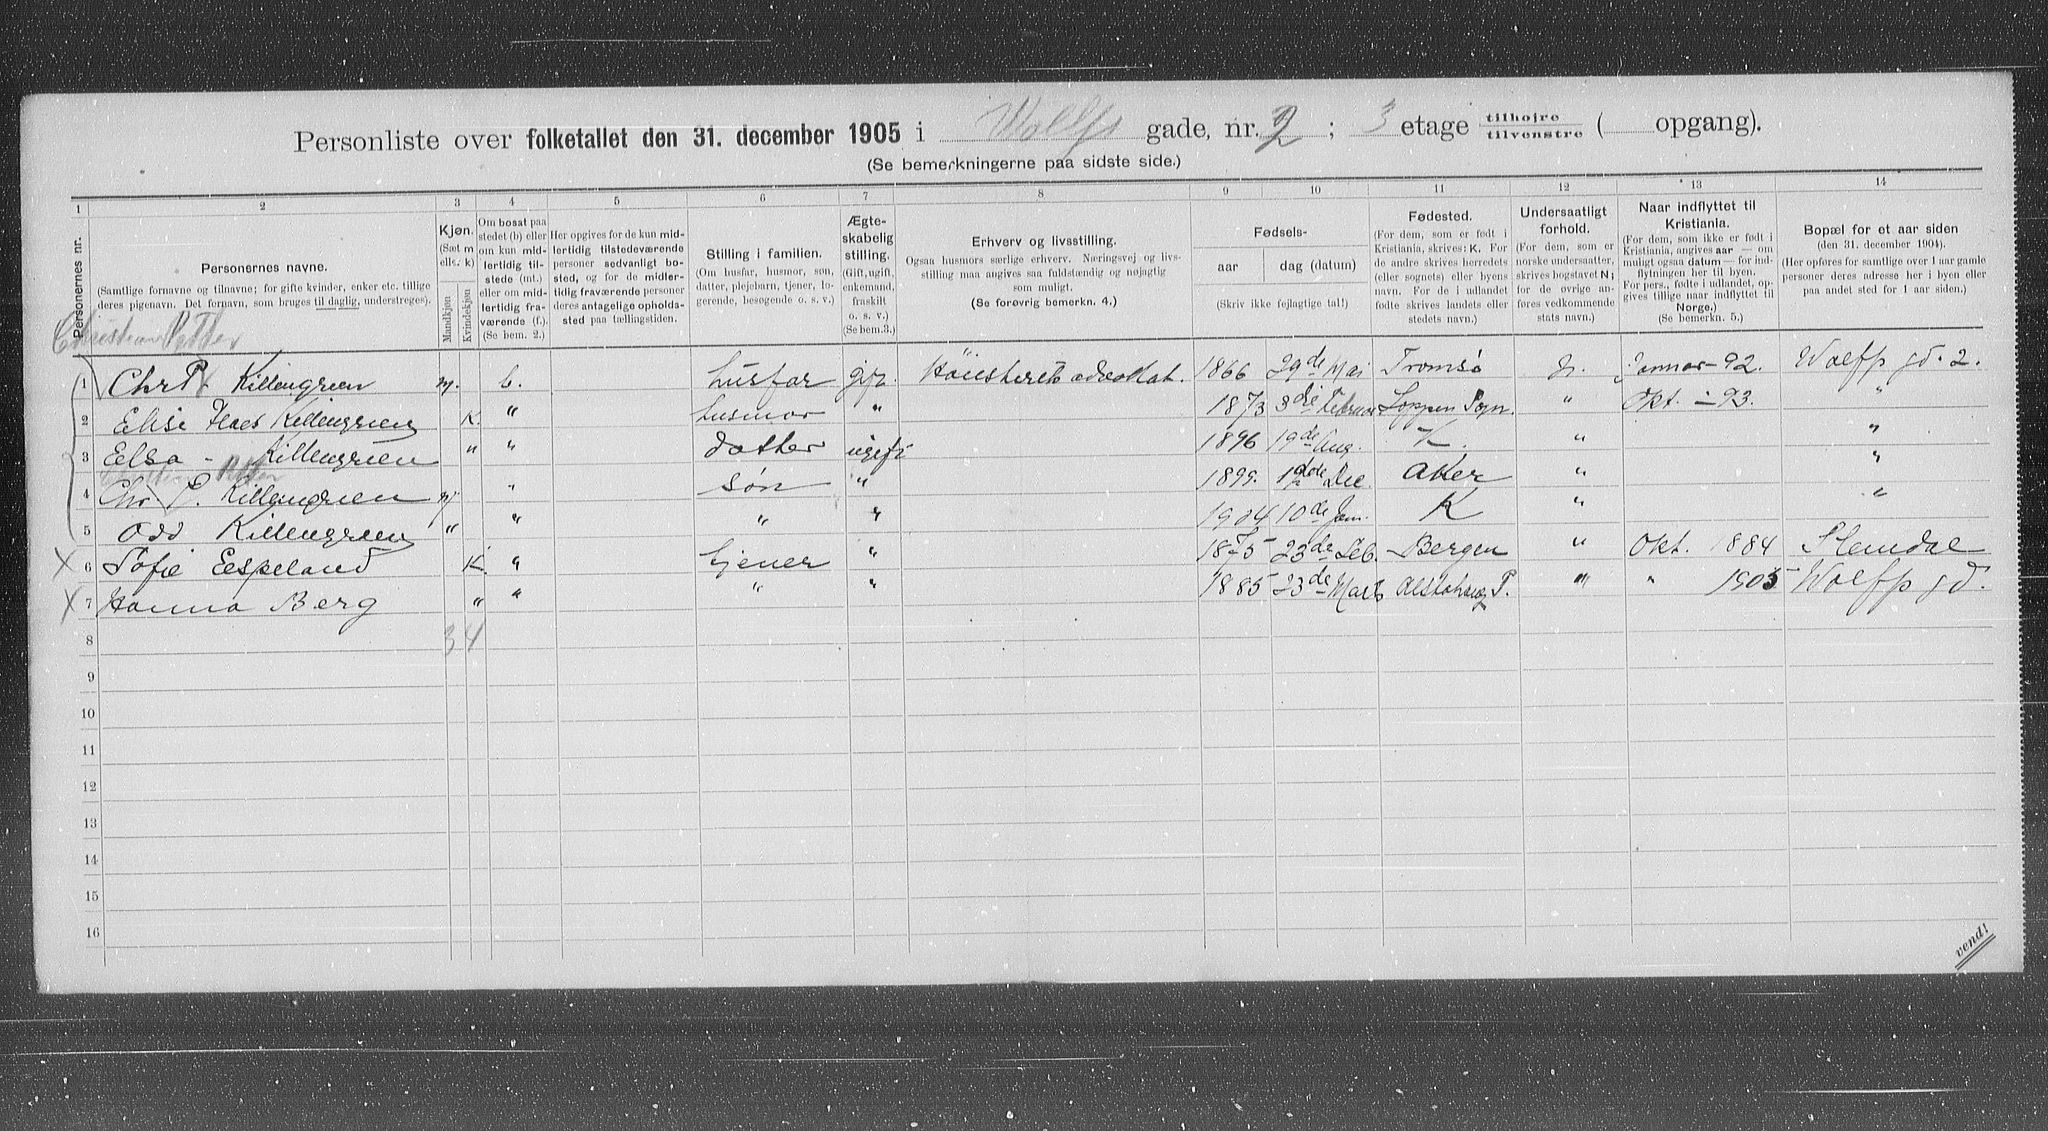 Personliste over folketallet den 31. december 1905 i Wolffs gade, nr. 2 ; 3 etage tilhøjre tilvenstre ( opgang).
(Se bemerkningerne paa sidste side.)
1 2 3 4 5 6 7 8 9 10 11 12 13 14
Personernes nr.
Personernes navne.
(Samtlige fornavne og tilnavne; for gifte kvinder, enker etc. tillige deres pigenavn. Det fornavn, som bruges til daglig, understreges).
Kjøn.
(Sæt m ell. k)
Mandkjøn.
Kvindekjøn
Om bosat paa stedet (b) eller om kun midlertidig tilstede (mt.) eller om midlertidig fraværende (f.)
(Se bem. 2.)
Her opgives for de kun midlertidig tilstedeværende personer sedvanlig bosted, og for de midlertidig fraværende personer deres antagelige opholdssted paa tællingstiden.
Stilling i familien.
(Om husfar, husmor, søn, datter, plejebarn, tjener, logerende, besøgende o. s. v.)
Ægteskabelig stilling.
(Gift, ugift, enkemand, fraskilt o. s. v.)
(Se bem.3.)
Erhverv og livsstilling.
Ogsaa husmors særlige erhverv. Næringsvej og livsstilling maa angives saa fuldstændig og nøjagtig som muligt.
(Se forøvrig bemerkn. 4.)
Fødsels-
aar dag (datum)
(Skriv ikke fejlagtige tal!)
Fødested.
(For dem, som er født i Kristiania, skrives: K. For de andre skrives herredets (eller sognets) eller byens navn. For de i udlandet fødte skrives landets eller stedets navn.)
Undersaatligt forhold.
(For dem, som er norske undersaatter, skrives bogstavet N; for de øvrige anføres vedkommende stats navn.)
Naar indflyttet til Kristiania.
(For dem, som ikke er født i Kristiania, angives aar — om muligt ogsaa datum — for indflytningen her til byen. For pers., fødte i udlandet, opgives tillige naar indflyttet til Norge.)
(Se bemerkn. 5.)
Bopæl for et aar siden
(den 31. december 1904).
(Her opføres for samtlige over 1 aar gamle personer deres adresse her i byen eller paa andet sted for 1 aar siden.)
Christian Petter
1 Chr P Killengreen m. b. husfar gift Høiesteretsadvokat. 1866 29de Mai Tromsø N. Januar - 92. Wolffs gd. 2.
2 Elise Killengreen K. " husmor " 1873 3die Februar Loppen Sogn. " Okt. - 93. "
3 Elsa - Killengreen " " datter ugift 1896 19de Aug. K. " "
Christian Petter
4 Chr P. Killengreen m " søn " 1899. 12de Dec. Aker " "
5 Odd Killengreen " " " " 1904 10de Jan. K " "
6 Sofie Eespeland K. " tjener " 1875 23de Feb. Bergen " Okt. 1884 Slemdal
7 Hanna Berg " " " " 1885 23de Marts Alstahaug P. " " 1905 Wolffs gd.
8 3 4
9
10
11
12
13
14
15
16
vend!